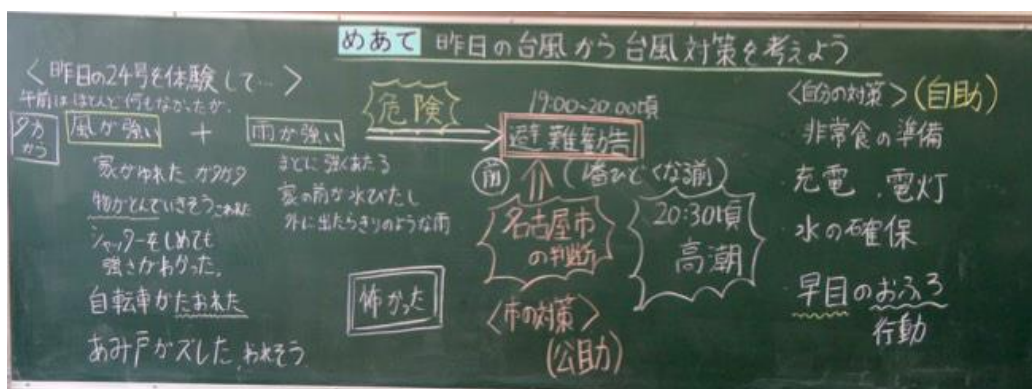 めあて 昨日の台風から台風対策を考えよう
<昨日の24号を体験して…>
午前はほとんど何もなかったが、
夕方から
風が強い + 雨が強い
家がゆれた ガタガタ
物がとんでいきそう こわれた
シャッターをしめても
強さがわかった。
自転車がたおれた
あみ戸がズレした、われそう
まどに強くあたる
家の前が水びたし
外に出たらきりのような雨
怖かった
危険
19:00-20:00頃
避難勧告
前 (1番ひどくなる前)
名古屋市
の判断
20:30頃
高潮
<市の対策>
(公助)
<自分の対策> (自助)
非常食の準備
充電、電灯
水の確保
早目のおふろ
行動